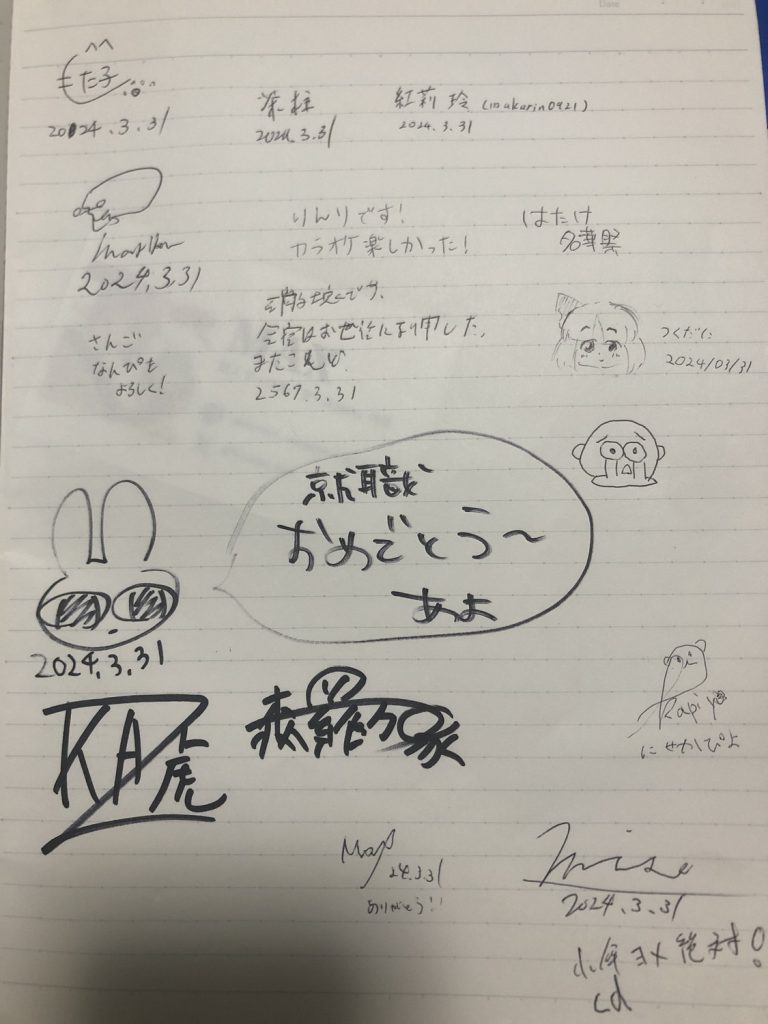 Date
もた子
2024.3.31
2024.3.31
紅莉玲 (makarin0921)
2024.3.31
2024.3.31
りんりです!
カラオケ楽しかった!
はたけ
さんご
なんぴも
よろしく!
今宿はお世話になり申した。
2567.3.31
つくだに
2024/03/31
就職
おめでとう～
あよ
2024.3.31
KA虎
Kapiyo
にせかぴよ
24.3.31
ありがとう!!
mise
2024.3.31
絶対!